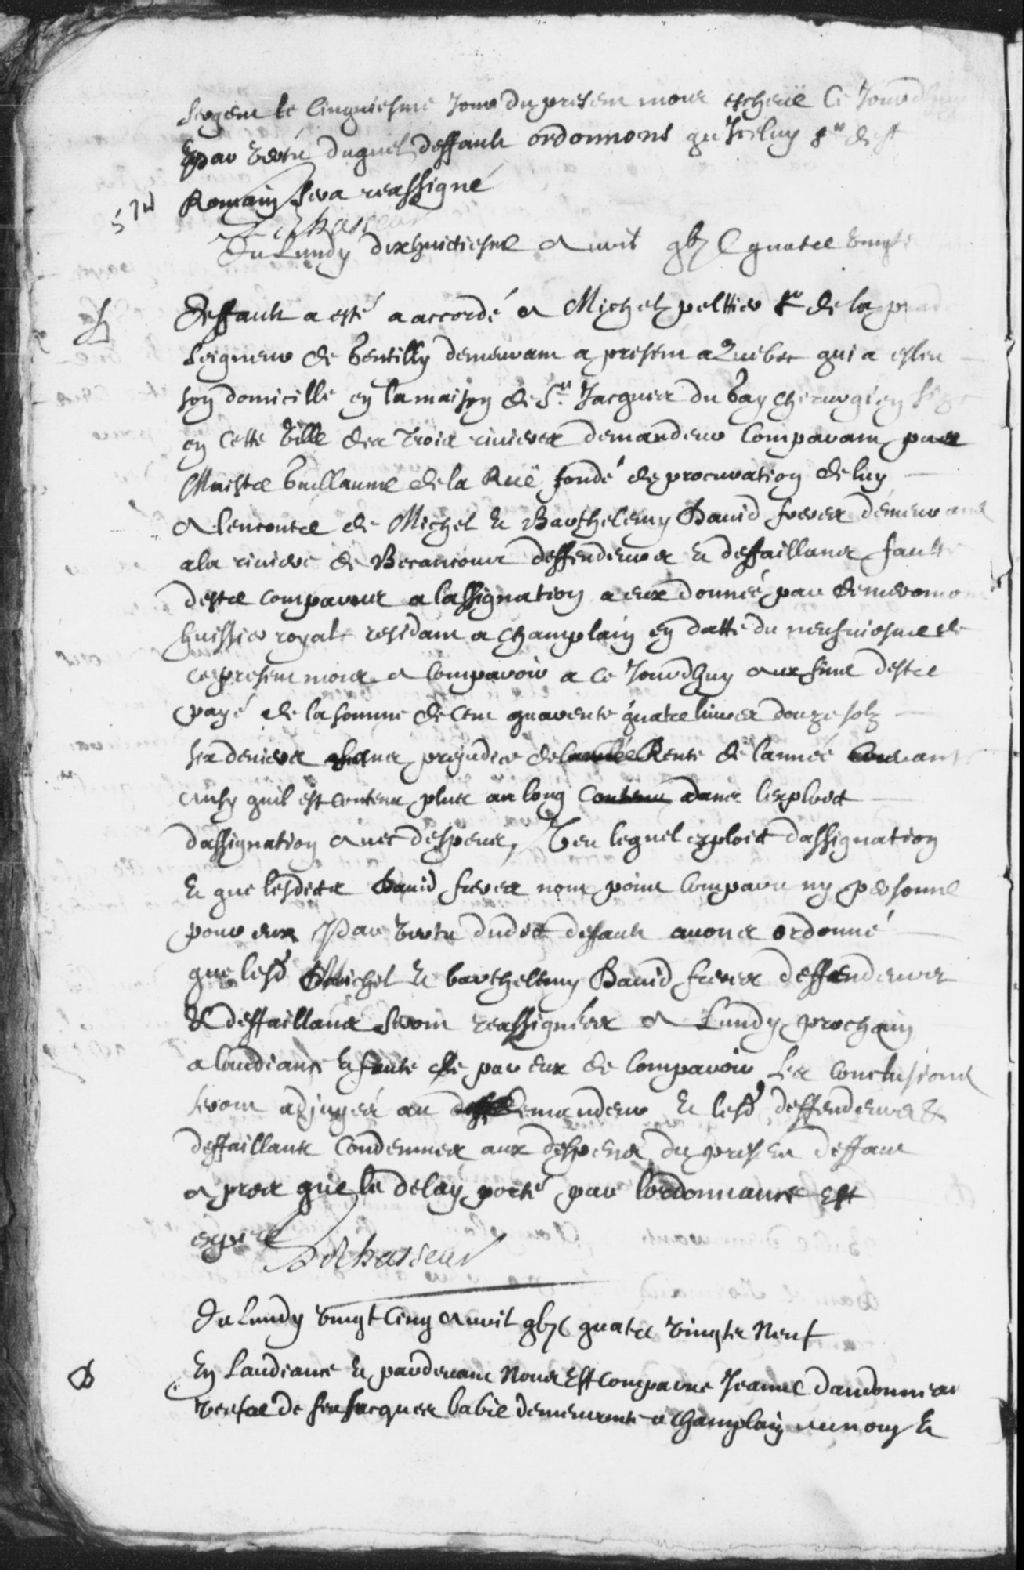 sergent le cinquiesme Jour du present mois escheüe Ce Jourdhuy
& par vertu duquel deffault ordonnons quIceluy Sr de St
Romain sera reassigné
574
Lechasseur
Du Lundy dixhuictiesme Avril gbjC quatre vingts
Deffault a esté accordé A Michel peltier Sr de la prade
Seigneur de Gentilly demeurant a present a Quebec qui a esleu
son domicille en la maison de Sr. Jacques du bay chirurgien size
en Cette Ville des trois rivieres demandeur Comparant par
Maistre Guillaume de la Rüe fondé de procuration de luy
A lencontre de Michel & Barthelemy David freres demeurans
a la riviere de Becancour deffendeurs & deffaillans faulte
destre comparus a lassignation a eux donnée par demeromont
huissier royale residant a champlain en datte du neufviesme de
ce present mois A Comparoir a Ce Jourdhuy aux fins destre
payé de la somme de Cent quarente quatre livres douze solz
six deniers sans prejudice de la Rente de lannée Courante
ainsy quil est contenu plus au long Contenu dans lexploict
dassignation avec despens, Veu lequel exploict dassignation
& que lesdicts David freres nont point Comparu ny personne
pour eux Par vertu dudict deffault avons ordonné
que lesd Michel & barthellemy David freres deffendeurs
& deffaillans seront reassignées A Lundy prochain
a laudiance & faute par eux de Comparoir Les Conclusions
seront adjugés au demandeur & lesd deffendeurs &
deffaillans Condemnes aux despens du present deffaut
apres que le delay porté par lordonnance Est
expiré
Lechasseur
Du Lundy vingt Cinq Avril gbjC quatre vingts Neuf
En Laudiance & pardevant Nous Est Comparue Jeanne dandonneau
veufve de feu Jacques babie demeurante a Champlain &